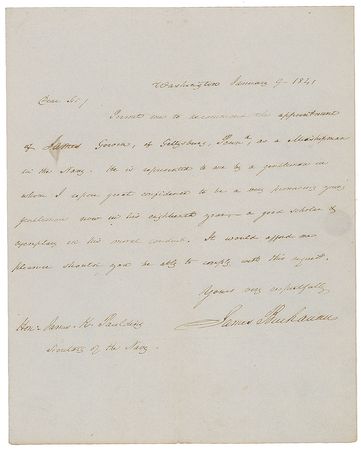 Washington January 9 1841
Dear Sir/
Permit me to recommend the appointment
of James Gowen, of Gettysburg, Penna, as a Midshipman
in the Navy. He is represented to me by a gentleman in
whom I repose great confidence to be a very promising young
gentleman now in his eighteenth year, a good scholar &
exemplary in his moral conduct. It would afford me
pleasure should you be able to comply with this request.
Yours very respectfully
James Buchanan
Hon: James K. Paulding
Secretary of the Navy